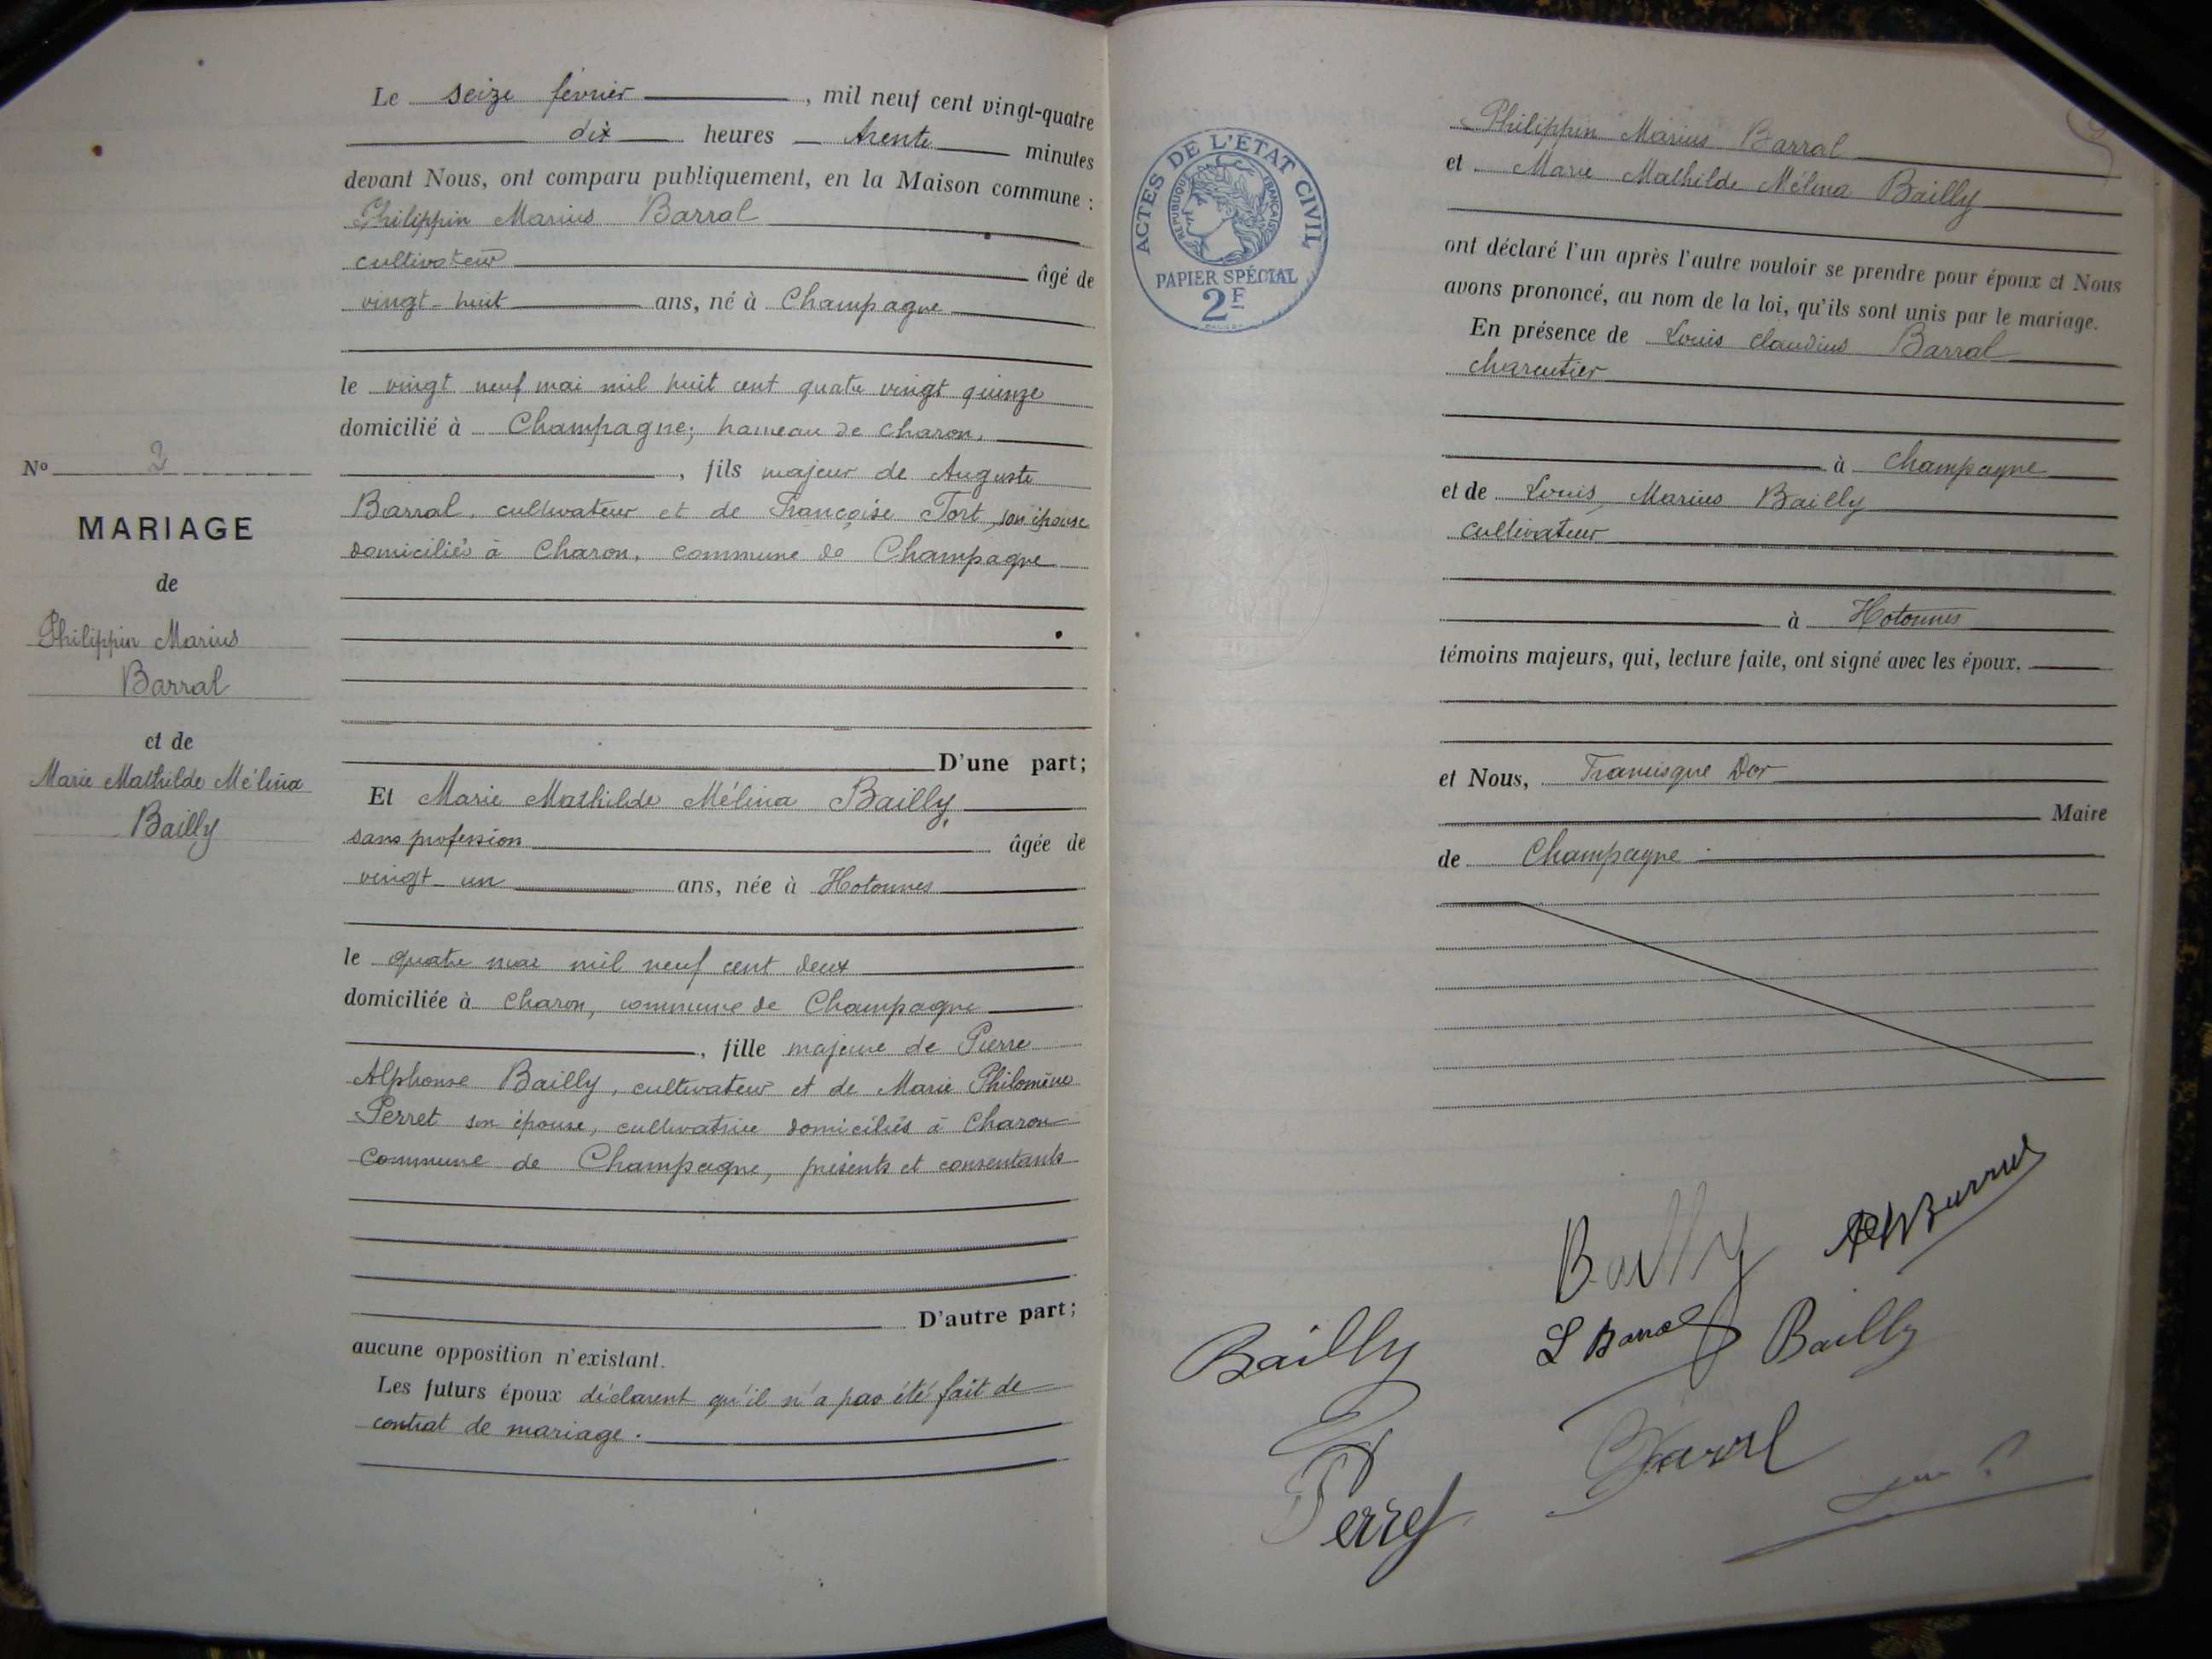 Le seize février, mil neuf cent vingt-quatre
dix heures trente minutes
devant Nous, ont comparu publiquement, en la Maison commune :
Philippin Marius Barral
cultivateur âgé de
vingt-huit ans, né à Champagne
le vingt neuf mai mil huit cent quatre vingt quinze
domicilié à Champagne, hameau de Charon,
, fils majeur de Auguste
Barral, cultivateur et de Françoise Tort, son épouse
domiciliés à Charon, commune de Champagne
D'une part;
Et Marie Mathilde Mélina Bailly,
sans profession âgée de
vingt un ans, née à Hotonnes
le quatre mai mil neuf cent deux
domiciliée à Charon, commune de Champagne
, fille majeure de Pierre
Alphonse Bailly, cultivateur et de Marie Philomène
Perret son épouse, cultivatrice domiciliés à Charon
Commune de Champagne, présents et consentants
D'autre part;
aucune opposition n'existant.
Les futurs époux déclarent qu'il n'a pas été fait de
contrat de mariage.
No 2
MARIAGE
de
Philippin Marius
Barral
et de
Marie Mathilde Mélina
Bailly
ACTES DE L'ÉTAT CIVIL
RÉPUBLIQUE FRANÇAISE
PAPIER SPÉCIAL
2F
Philippin Marius Barral
et Marie Mathilde Mélina Bailly
ont déclaré l'un après l'autre vouloir se prendre pour époux et Nous
avons prononcé, au nom de la loi, qu'ils sont unis par le mariage.
En présence de Louis Claudius Barral
charcutier
à Champagne
et de Louis, Marius Bailly
cultivateur
à Hotonnes
témoins majeurs, qui, lecture faite, ont signé avec les époux.
et Nous, Francisque Dor
Maire
de Champagne
Bailly
Bailly L Barral Bailly
Barral
Perret